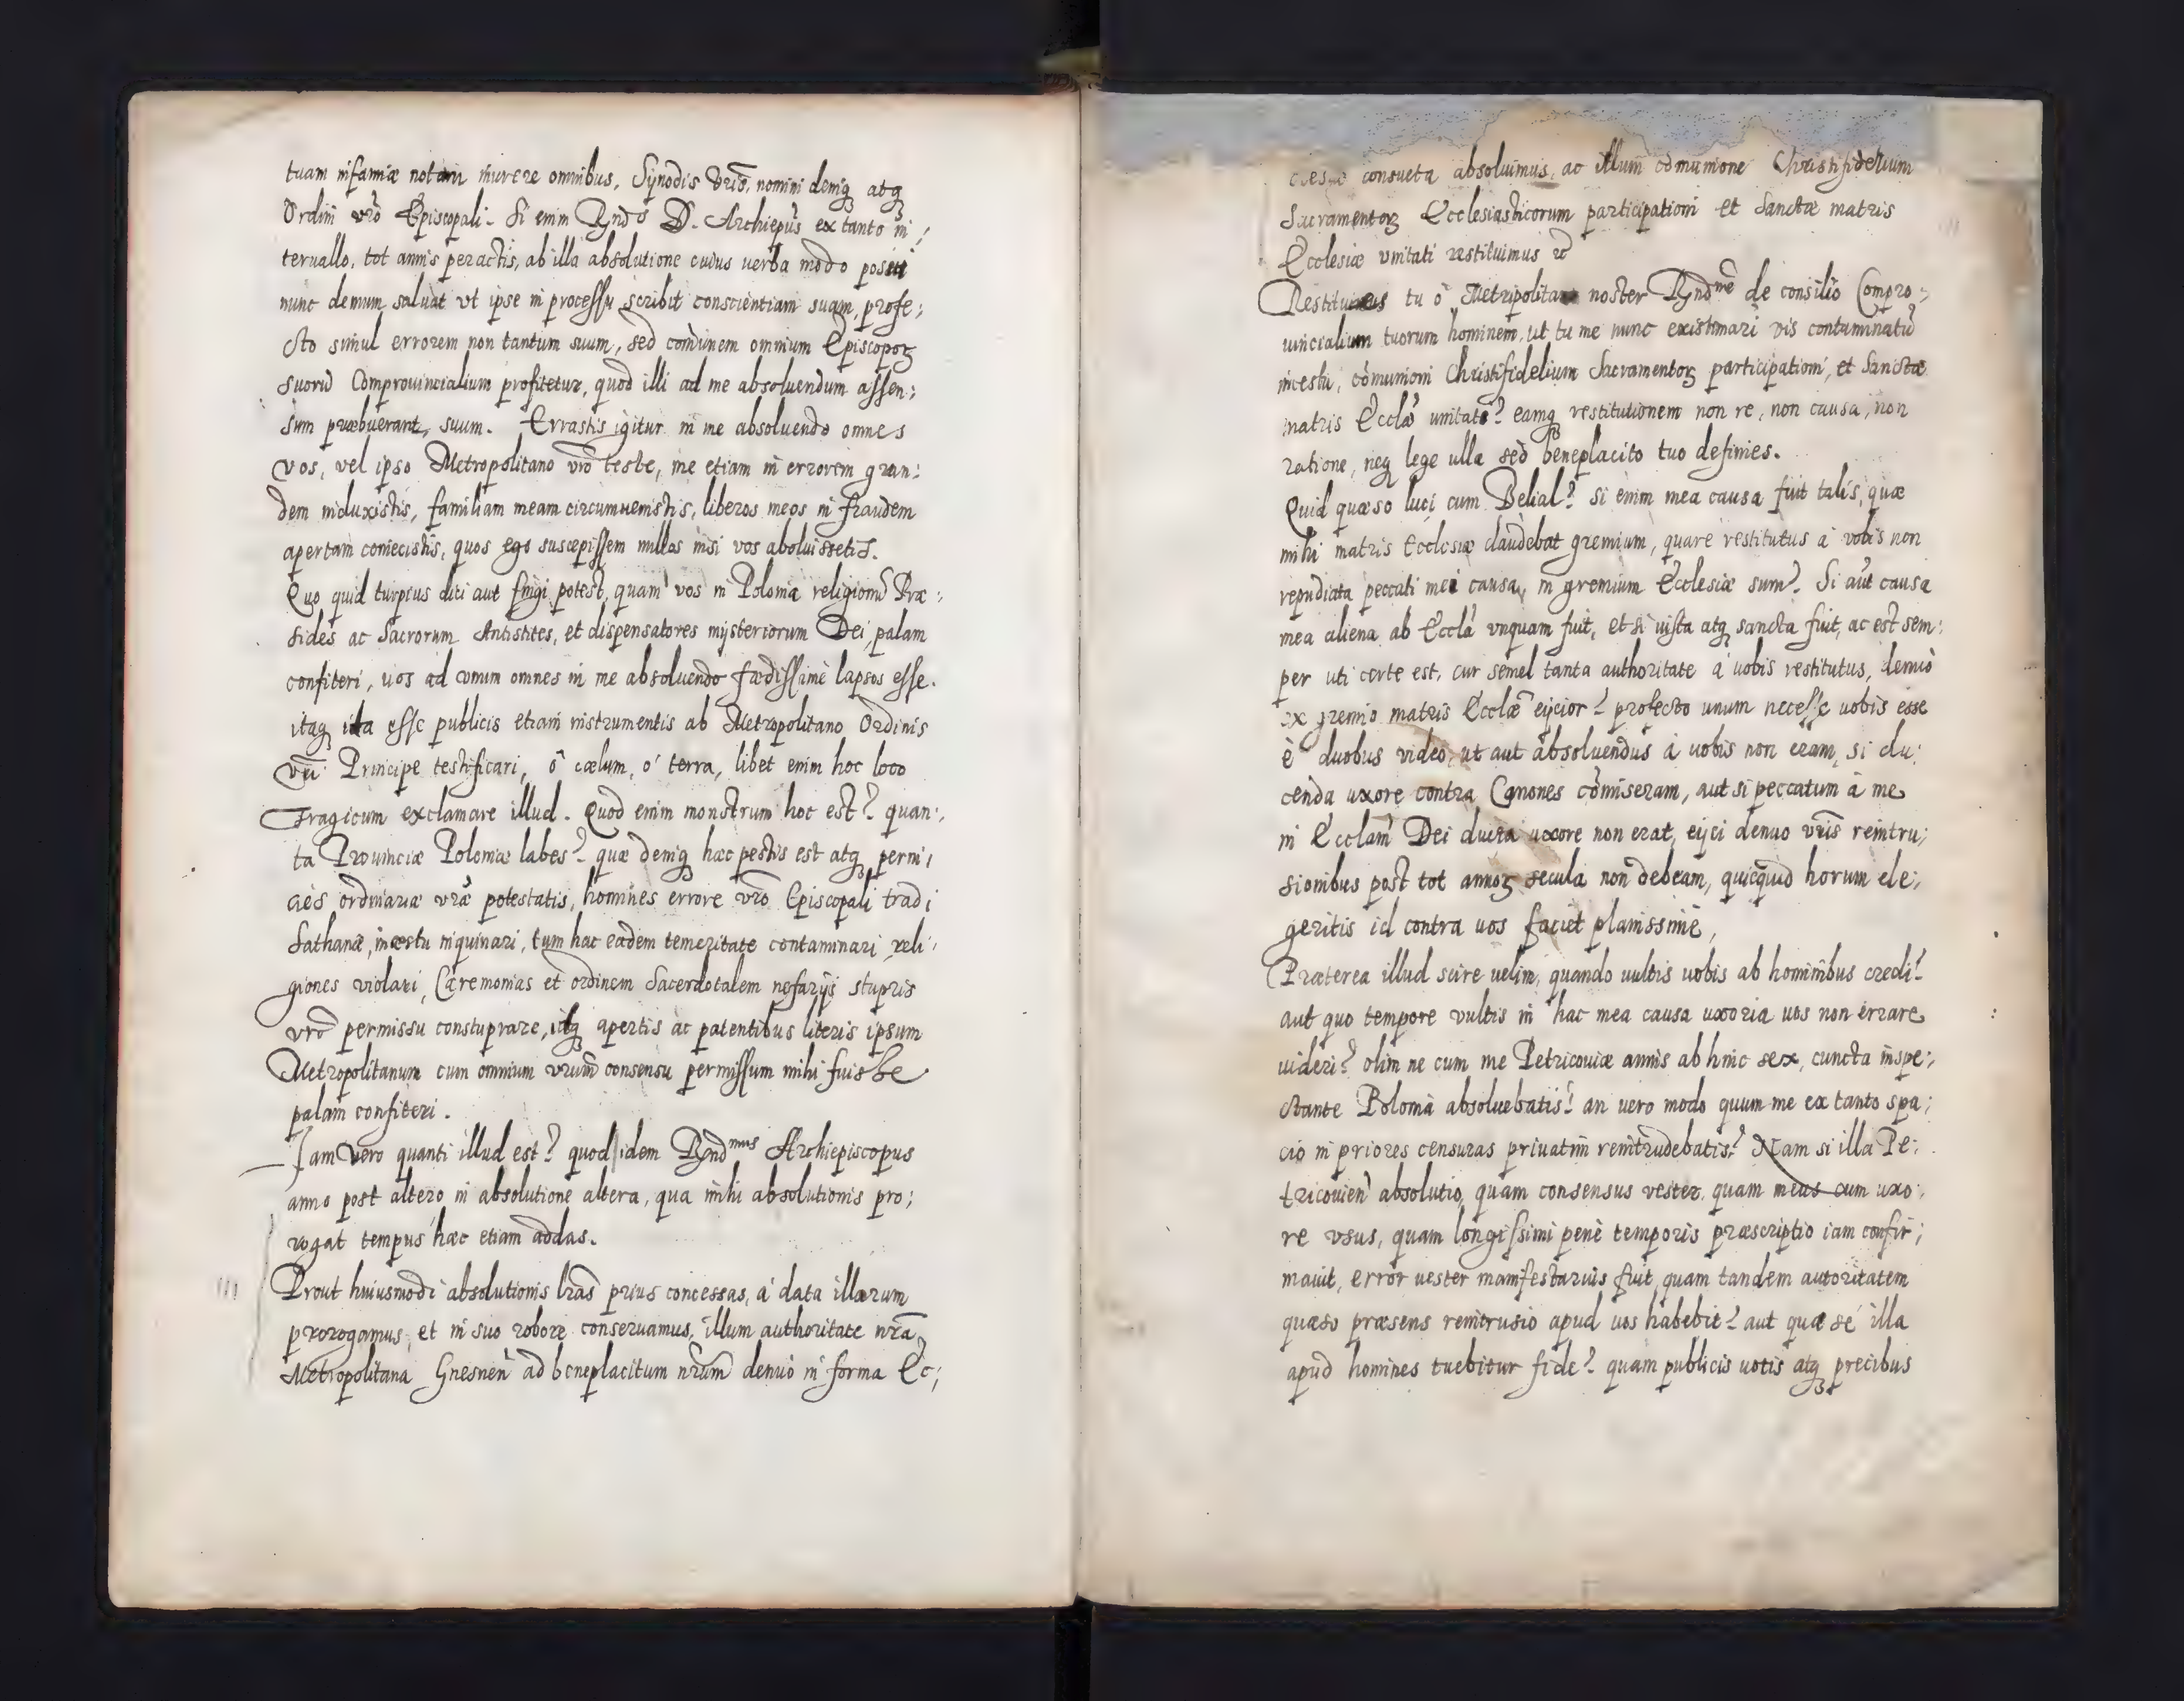 tuam infamiæ notam inurere omnibus, Synodis vrīs, nomini deniqꝫ atqꝫ
Ordini vr̄o Episcopali. Si enim Rndꝰ D. Archiepūs ex tanto in/
teruallo, tot annis peractis, ab illa absolutione cuius uerba modo posui
nunc demum saluat vt ipse in processu scribit conscientiam suam, profe;
cto simul errorem non tantum suum, sed com̄unem omnium Episcopoꝝ
suorū Comprouincialium profitetur, quod illi ad me absoluendum assen;
sum præbuerant, suum. Errastis igitur in me absoluendo omnes
vos, vel ipso Metropolitano vr̄o teste, me etiam in errorem gran:
dem induxistis, familiam meam circumuenistis, liberos meos in fraudem
apertam coniecistis, quos ego suscepissem nullos nisi vos absoluissetis.
Quo quid turpius dici aut fingi potest, quam vos in Polonia religionū Præ:
sides ac Sacrorum Antistites, et dispensatores mysteriorum Dei, palam
confiteri, uos ad vnum omnes in me absoluendo fœdissimè lapsos esse.
itaqꝫ ita esse publicis etiam instrumentis ab Metropolitano Ordinis
vr̄i Principe testificari, ô cælum, o terra, libet enim hoc loco
Tragicum exclamare illud. Quod enim monstrum hoc est? quan:
ta Prouinciæ Poloniæ labes? quæ deniqꝫ hæc pestis est atqꝫ perni,
cies ordinariæ vr̄æ potestatis, homines errore vr̄o Episcopali tradi
Sathanæ, incestu inquinari, tum hac eadem temeritate contaminari, reli,
giones violari, Cæremonias et ordinem Sacerdotalem nefarijs stupris
vr̄o permissu constuprare, idqꝫ apertis ac patentibus literis ipsum
Metropolitanum cum omnium vr̄um consensu permissum mihi fuisse
palam confiteri.
Iam vero quanti illud est? quod idem Rndmus Archiepiscopus
anno post altero in absolutione altera, qua mihi absolutionis pro;
rogat tempus hæc etiam addas.
Prout huiusmodi absolutionis lr̄as prius concessas, à data illarum
prorogamus, et in suo robore conseruamus, illum authoritate nr̄a
Metropolitana Gnesnen̄ ad beneplacitum nr̄um denuò in forma Ec;
consueta absoluimus, ac illum com̄unione Christifidelium
Sacramentoꝝ Ecclesiasticorum participationi et Sanctæ matris
Ecclesiæ vnitati restituimus ꝛc
Restitues tu ô Metropolitane noster Rndme de consilio Compro;
uincialium tuorum hominem, ut tu me nunc existimari vis contaminatū
incestu, com̄unioni Christifidelium Sacramentoꝝ participationi, et Sanctæ
matris Eccl̄æ unitati? eamqꝫ restitutionem non re, non causa, non
ratione, neqꝫ lege ulla sed beneplacito tuo definies.
Quid quæso luci cum Belial? si enim mea causa fuit talis, quæ
mihi matris Ecclesiæ claudebat gremium, quare restitutus à vobis non
repudiata peccati mei causa, in gremium Ecclesiæ sum? Si aūt causa
mea aliena ab Eccl̄a vnquam fuit, et si iusta atqꝫ sancta fuit, ac est sem:
per uti certe est, cur semel tanta authoritate à uobis restitutus, denuò
ex gremio matris Eccl̄æ eijcior? profecto unum necesse uobis esse
è duobus video, ut aut absoluendus à uobis non eram, si du:
cenda uxore contra Canones com̄iseram, aut si peccatum à me
in Eccl̄am Dei ducta uxore non erat, eijci denuo vr̄is reintru;
sionibus post tot annoꝝ secula non debeam, quicquid horum ele;
geritis id contra uos faciet planissimè,
Præterea illud scire uelim, quando uultis uobis ab hominibus credi?
aut quo tempore vultis in hac mea causa uxoria uos non errare
uideri? olim ne cum me Petricouiæ annis ab hinc sex, cuncta inspe;
ctante Polonia absoluebatis? an uero modo quum me ex tanto spa;
cio in priores censuras priuatim reintrudebatis? Nam si illa Pe;
tricouien̄ absolutio, quam consensus vester, quam meus cum uxo;
re vsus, quam longissimi penè temporis præscriptio iam confir;
mauit, error uester manifestarius fuit, quam tandem autoritatem
quæso præsens reintrusio apud uos habebit? aut qua se illa
apud homines tuebitur fide? quam publicis uotis atqꝫ precibus